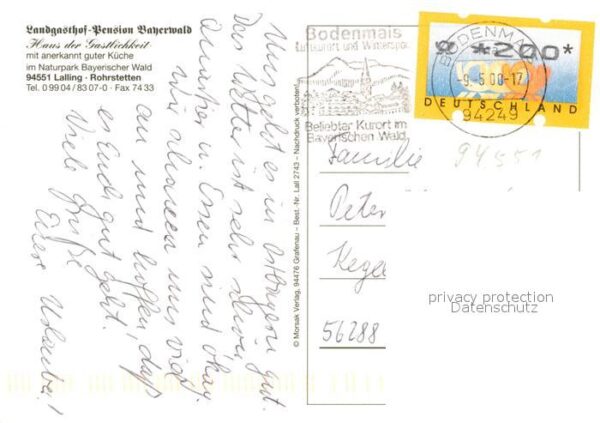 Landgasthof-Pension Bayerwald
Haus der Gastlichkeit
mit anerkannt guter Küche
im Naturpark Bayerischer Wald
94551 Lalling · Rohrstetten
Tel. 0 99 04 / 83 07-0 · Fax 74 33
Uns geht es in Ostbayern gut.
Das Wetter ist sehr schön,
Quartier u. Essen sind okay.
Wir schauen uns viel
an und hoffen, daß
es Euch gut geht.
Viele Grüße
Eure Urlauber!
© Morsak Verlag, 94476 Grafenau - Best.-Nr. Lall 2743 - Nachdruck verboten!
Bodenmais
Luftkurort und Wintersport
Beliebter Kurort im
Bayerischen Wald
BODENMAIS
-9.-5.00-17
94249
*200*
DEUTSCHLAND
94551
Familie
Peter
56288
privacy protection
Datenschutz